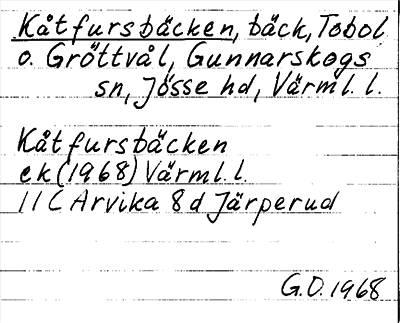 Kåtfursbäcken, bäck, Tobol
o. Gröttvål, Gunnarskogs
sn, Jösse hd, Värml. l.
Kåtfursbäcken
ek (1968) Värml. l.
11 C Arvika 8 d Järperud
G.O. 1968